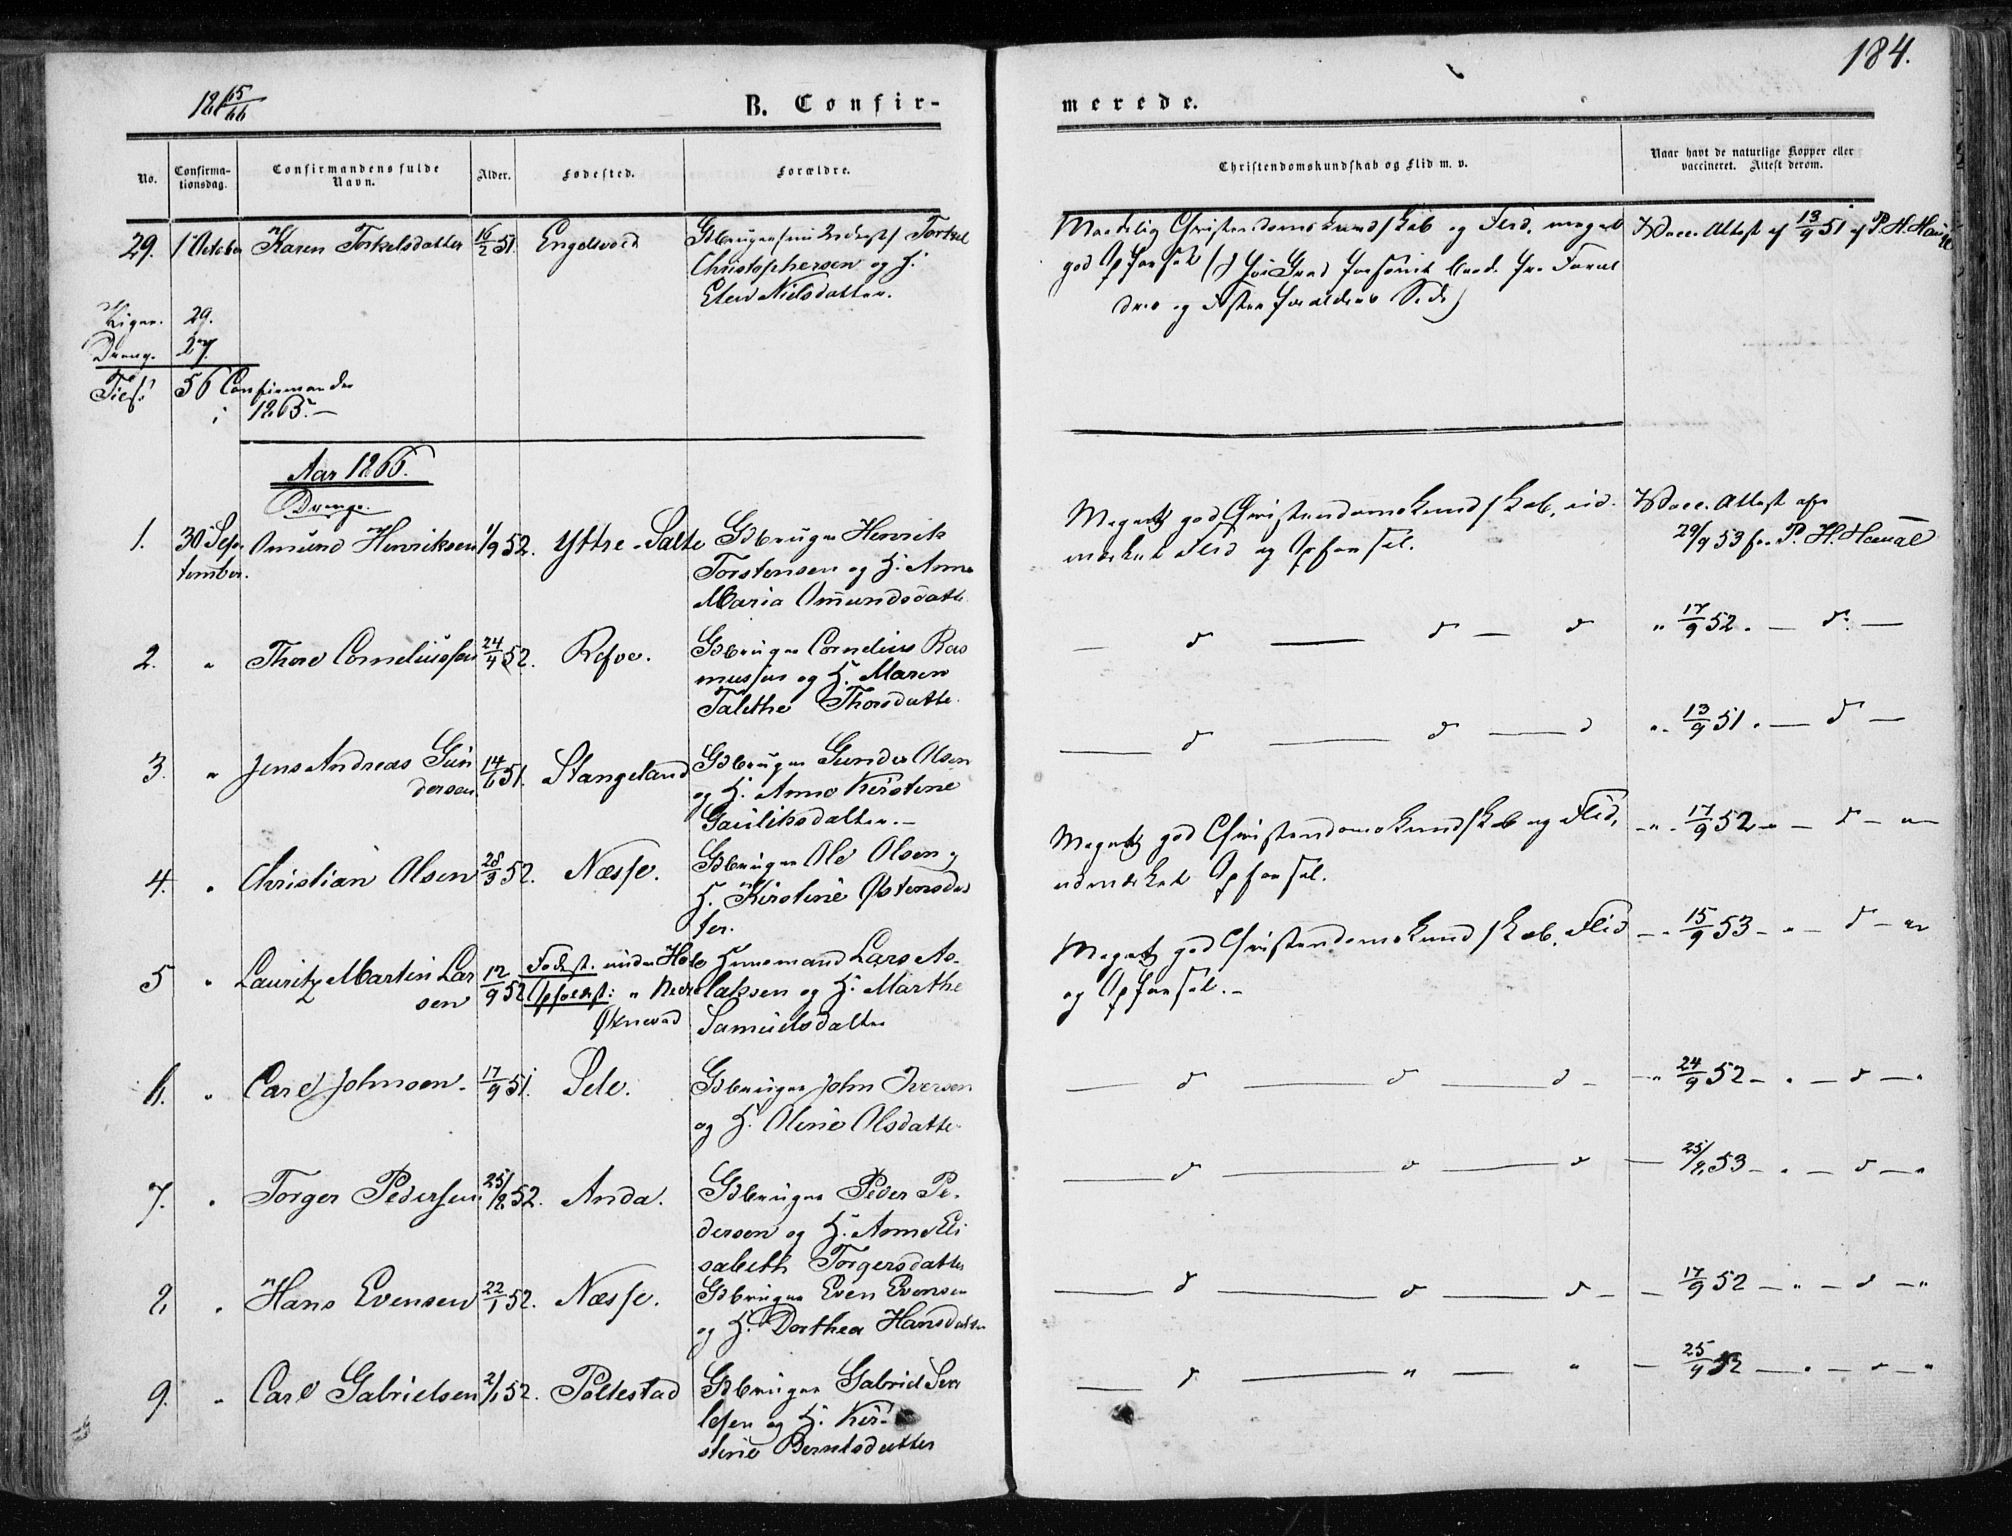 184.
1865/66
B. Confir-
merede.
No.
Confirma-
tionsdag.
Confirmandens fulde
Navn.
Alder.
Fødested.
Forældre.
Christendomskundskab og Flid m. v.
Naar havt de naturlige Kopper eller
vaccineret. Attest derom.
29. 1 October Karen Torkelsdatter 16/2 51. Engelsvold
Torkel
Christophersen og H.
Nielsdatter.
Maadelig Christendomskundskab og Flid, meget
god Opførsel
Vacc. Attest af 13/9 51 af P. H. Haugl
Piger. 29.
Dreng. 27.
Tils. 56 Confirmander
i 1865. —
Aar 1866.
Drenge.
1. 30 Sep-
tember. Omund Henriksen 1/9 52. Yttre-Salte Gdbruger Henrik
Torstensen og H. Anne
Maria Omundsdatte
Meget god Christendomskundskab, ud-
mærket Flid og Opførsel.
Vacc. Attest
29/9 53 P. H.
2. " Thore Corneliussen 24/4 52. Refve. Gdbruger Cornelius Ras
mussen og H. Maren
Talethe Thorsdatte.
— d — d — d " 17/9 52. — d. —
3. " Jens Andreas Gun
dersen 14/6 51. Stangeland Gdbruger Gunder Olsen
og H. Anne Kirstine
Gauliksdatter. —
— d — d — d ". 13/9 51. — d —
4. " Christian Olsen 28/3 52. Næsse. Gdbruger Ole Olsen og
H. Kirstine Østensdat
ter.
Meget god Christendomskundskab og Flid,
udmærket Opførsel.
17/9 52 — d —
5 " Lauritz Martin Lar
sen 12/9 52 Fødest. under Hole
Opholdst: " Nedre
Øxnevad
Huusmand Lars As-
laksen og H. Marthe
Samuelsdatter
Meget god Christendomskundskab, Flid
og Opførsel. —
15/9 53 — d —
6. " Carl Johnsen. 17/9 51. Sele. Gdbruger John Iversen
og H. Oline Olsdatte
— d — d — d — 24/9 52 — " — d — "
7. " Torger Pedersen 25/12 52. Anda. Gdbruger Peder Pe-
dersen og H. Anne Eli
sabeth Torgersdatter
— d — d — d — 53 — " — d — "
8. " Hans Evensen 22/1 52. Næsse. Gdbruger Even Evensen
og H. Dorthea Hansdatter
— d — d — d — 17/9 52 — " — d — "
9. " Carl Gabrielsen 2/1 52. Poltestad Gdbruger Gabriel
og H. Kir-
stine Berntsdatter
— d — " — " — 25/9 52 — " — " — "